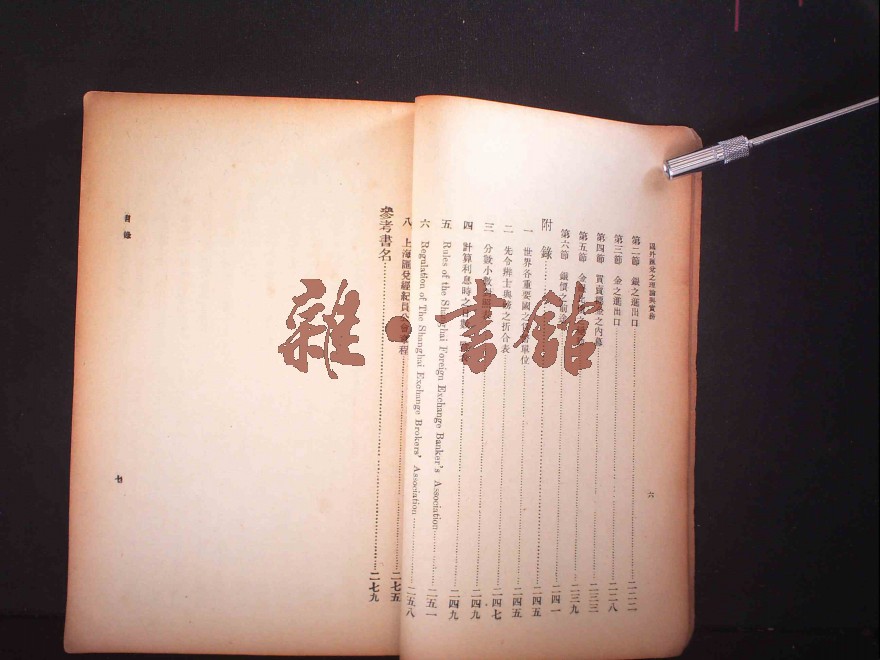 國外匯兌之理論與實務
六
第二節 銀之進出口 二二二
第三節 金之進出口 二二八
第四節 買賣 之內幕 二三三
第五節 金 二三九
第六節 銀價之 二四一
附錄 二四五
一 世界各重要國之 單位 二四五
二 先令辨士與 之折合表 二四七
三 分數小數 二四九
四 計算利息時之 二四九
五 Rules of the Shanghai Foreign Exchange Banker's Association 二五一
六 Regulation of The Shanghai Exchange Brokers' Association 二五八
八 上海匯兌經紀員 會章程 二七五
參考書名 二七九
目錄
七
雜·書館